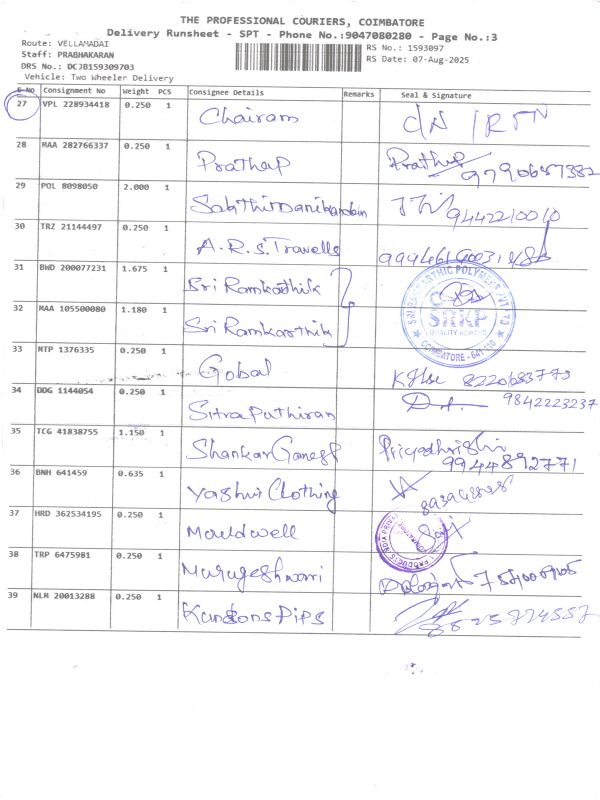 THE PROFESSIONAL COURIERS, COIMBATORE
Delivery Runsheet - SPT - Phone No.:9047080280 - Page No.:3
Route: VELLAMADAI RS No.: 1593097
Staff: PRABHAKARAN RS Date: 07-Aug-2025
DRS No.: DCJB159309703
Vehicle: Two Wheeler Delivery
S No Consignment No Weight PCS Consignee Details Remarks Seal & Signature
27 VPL 228934418 0.250 1 Chairam
28 MAA 282766337 0.250 1 Prathap Prathap 9790687382
29 POL 8098050 2.000 1 Sakthimanikandan 9442210010
30 TRZ 21144497 0.250 1 A.R.S. Travells
31 BWD 200077231 1.675 1 Sri Ramkarthik
32 MAA 105500080 1.180 1 Sri Ramkarthik
SRKP
QUALITY ALWAYS
COIMBATORE - 641 110
33 MTP 1376335 0.250 1 Gobal 8220683773
34 DDG 1144054 0.250 1 Sitra Puthiran 9842223237
35 TCG 41838755 1.150 1 Shankar Ganesh Priyadhrishi
9944892771
36 BNH 641459 0.635 1 Yashvi Clothing
37 HRD 362534195 0.250 1 Mouldwell
38 TRP 6475981 0.250 1 Murugeshwari
39 NLM 20013288 0.250 1 Kansons Pips